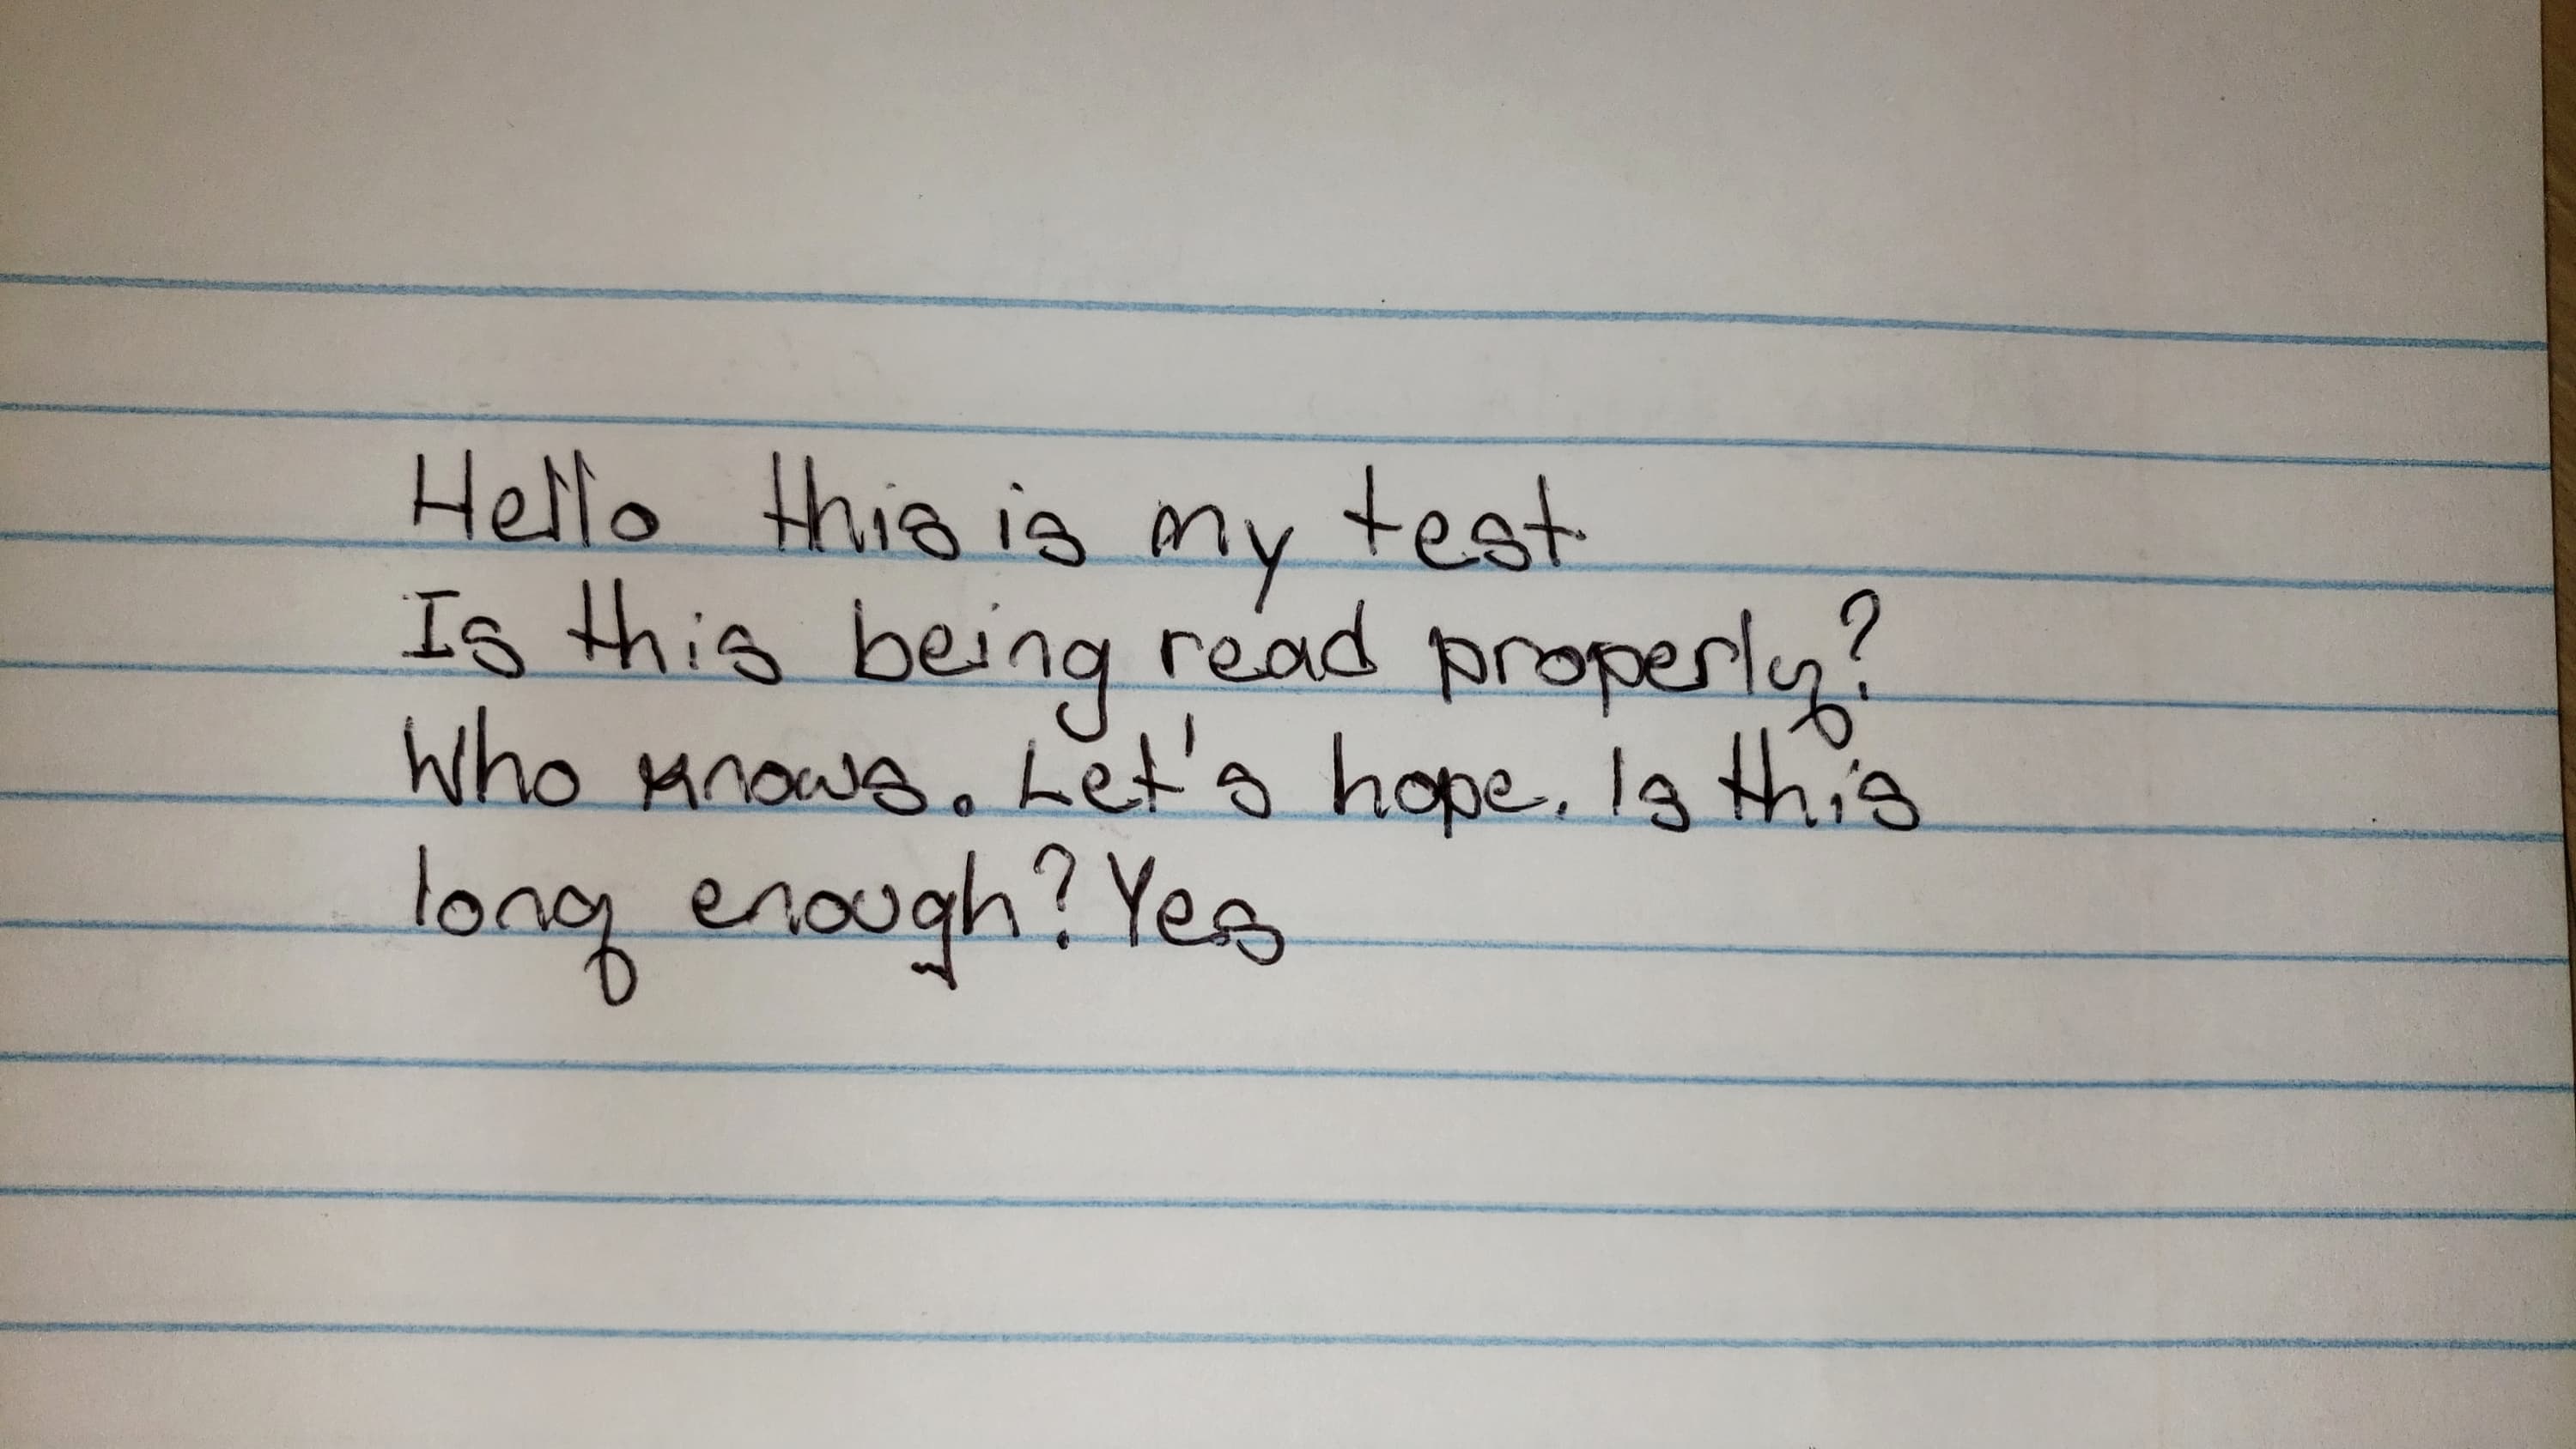 Hello this is my test
Is this being read properly?
Who knows. Let's hope. Is this
long enough? Yes